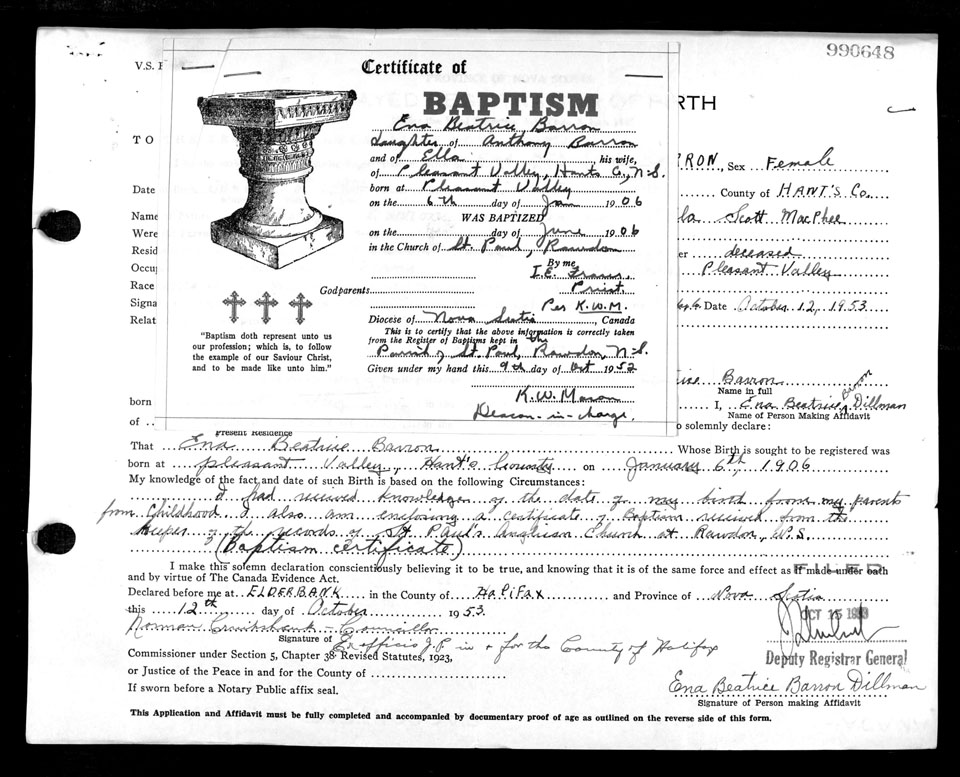 990648
V.S.
Certificate of
BAPTISM
BIRTH
Ena Beatrice Barron
daughter of Anthony Barron
and of Ella his wife,
of Pleasant Valley, Hants Co., N.S.
born at Pleasant Valley
on the 6th day of Jan 1906
WAS BAPTIZED
on the day of June 1906
in the Church of St. Paul, Rawdon
By me
Godparents
Priest
Per K.W.M.
Diocese of Nova Scotia, Canada
This is to certify that the above information is correctly taken
from the Register of Baptisms kept in the
Parish of St. Paul, Rawdon, N.S.
Given under my hand this 9th day of Oct 1952
K.W. Mason
Deacon-in-charge.
"Baptism doth represent unto us
our profession; which is, to follow
the example of our Saviour Christ,
and to be made like unto him."
TO
Date
Name
Were
Resid
Occu
Race
Signa
Relat
born
of
RRON, Sex Female
County of HANT'S Co.
Scott MacPhee
deceased
Pleasant Valley
Date October 12, 1953
Barron
Name in full
I, Ena Beatrice Barron Dillman
Name of Person Making Affidavit
o solemnly declare:
Present Residence
That Ena Beatrice Barron Whose Birth is sought to be registered was
born at pleasant Valley, Hant's County on January 6th, 1906
My knowledge of the fact and date of such Birth is based on the following Circumstances:
I had received knowledge of the date of my birth from my parents
from Childhood. I also am enclosing a certificate of Baptism received from the
keeper of the records of St Paul's Anglican Church at Rawdon, N.S.
(Baptism certificate)
I make this solemn declaration conscientiously believing it to be true, and knowing that it is of the same force and effect as if made under oath
and by virtue of The Canada Evidence Act.
FILED
Declared before me at ELDERBANK in the County of Halifax and Province of Nova Scotia
this 12th day of October 1953.
OCT 15 1953
Norman Cruikshank - Councillor
Signature of Ex officio J.P in & for the County of Halifax
Commissioner under Section 5, Chapter 38 Revised Statutes, 1923,
Deputy Registrar General
or Justice of the Peace in and for the County of
Ena Beatrice Barron Dillman
If sworn before a Notary Public affix seal.
Signature of Person making Affidavit
This Application and Affidavit must be fully completed and accompanied by documentary proof of age as outlined on the reverse side of this form.